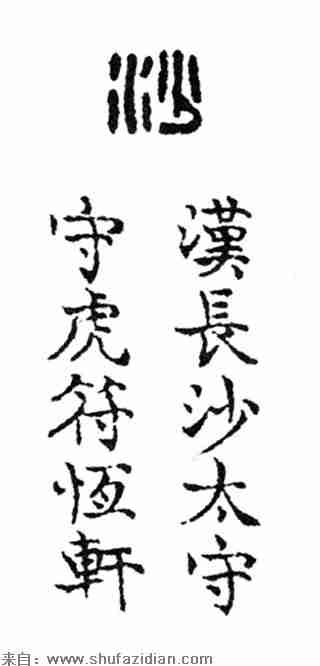 沙
漢長沙太守
守虎符恆軒
来自：www.shufazidian.com